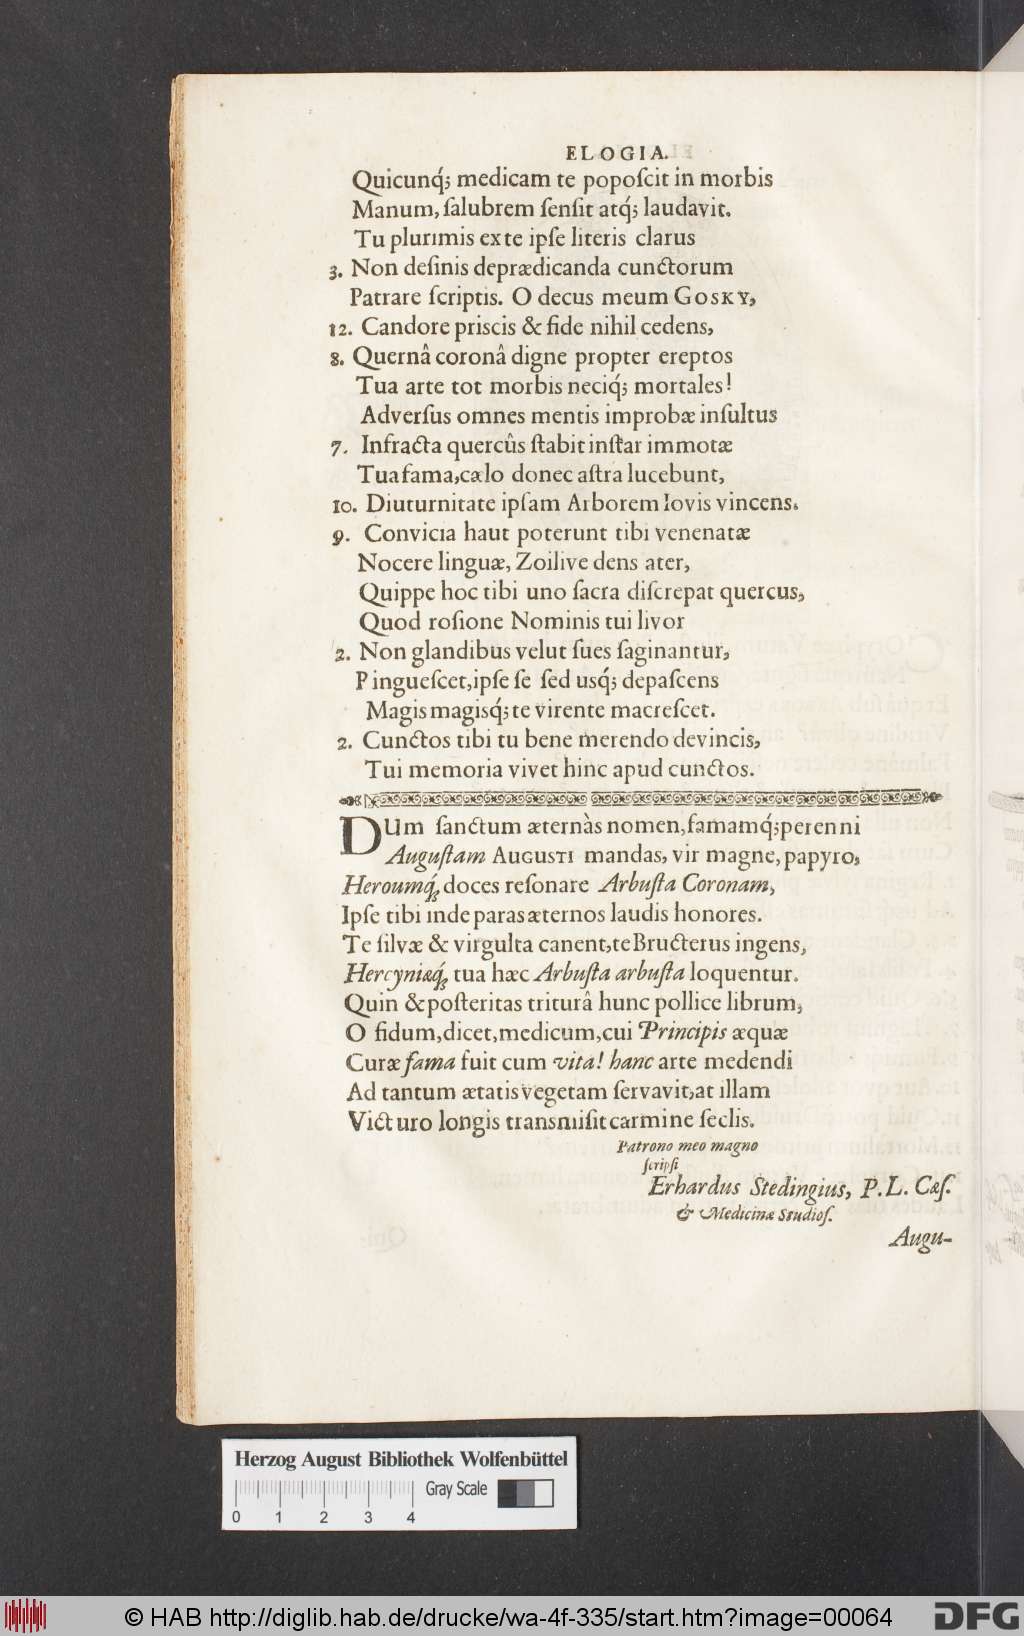 ELOGIA.
Quicunq́; medicam te popoſcit in morbis
Manum, ſalubrem ſenſit atq́; laudavit.
Tu plurimis ex te ipſe literis clarus
3. Non deſinis deprædicanda cunctorum
Patrare ſcriptis. O decus meum GOSKY,
12. Candore priscis & fide nihil cedens,
8. Quernâ coronâ digne propter ereptos
Tua arte tot morbis neciq́; mortales!
Adverſus omnes mentis improbæ inſultus
7. Infracta quercûs ſtabit inſtar immotæ
Tua fama, cælo donec aſtra lucebunt,
10. Diuturnitate ipſam Arborem Iovis vincens.
9. Convicia haut poterunt tibi venenatæ
Nocere linguæ, Zoilive dens ater,
Quippe hoc tibi uno ſacra diſcrepat quercus,
Quod roſione Nominis tui livor
2. Non glandibus velut ſues ſaginantur,
Pingueſcet, ipſe ſe ſed usq́; depaſcens
Magis magisq́; te virente macreſcet.
2. Cunctos tibi tu bene merendo devincis,
Tui memoria vivet hinc apud cunctos.
DUm ſanctum æternàs nomen, famamq́; perenni
Auguſtam AUGUSTI mandas, vir magne, papyro,
Heroumq́; doces reſonare Arbuſta Coronam,
Ipſe tibi inde paras æternos laudis honores.
Te ſilvæ & virgulta canent, te Bructerus ingens,
Hercyniæq́; tua hæc Arbuſta arbuſta loquentur.
Quin & poſteritas triturâ hunc pollice librum,
O fidum, dicet, medicum, cui Principis æquæ
Curæ fama fuit cum vita! hanc arte medendi
Ad tantum ætatis vegetam ſervavit, at illam
Victuro longis transmiſit carmine ſeclis.
Patrono meo magno
ſcripſi
Erhardus Stedingius, P. L. Cæſ.
& Medicinæ Studioſ.
Augu-
Herzog August Bibliothek Wolfenbüttel
Gray Scale
0 1 2 3 4
© HAB http://diglib.hab.de/drucke/wa-4f-335/start.htm?image=00064
DFG